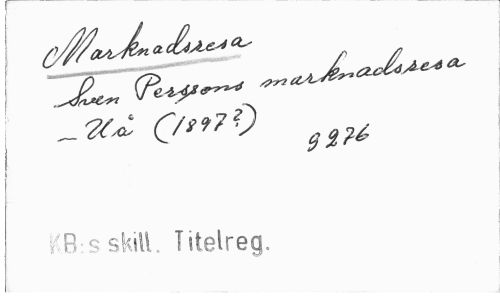 Marknadsresa
Sven Perssons marknadsresa
— Uå (1897?)
9276
KB:s skill. Titelreg.